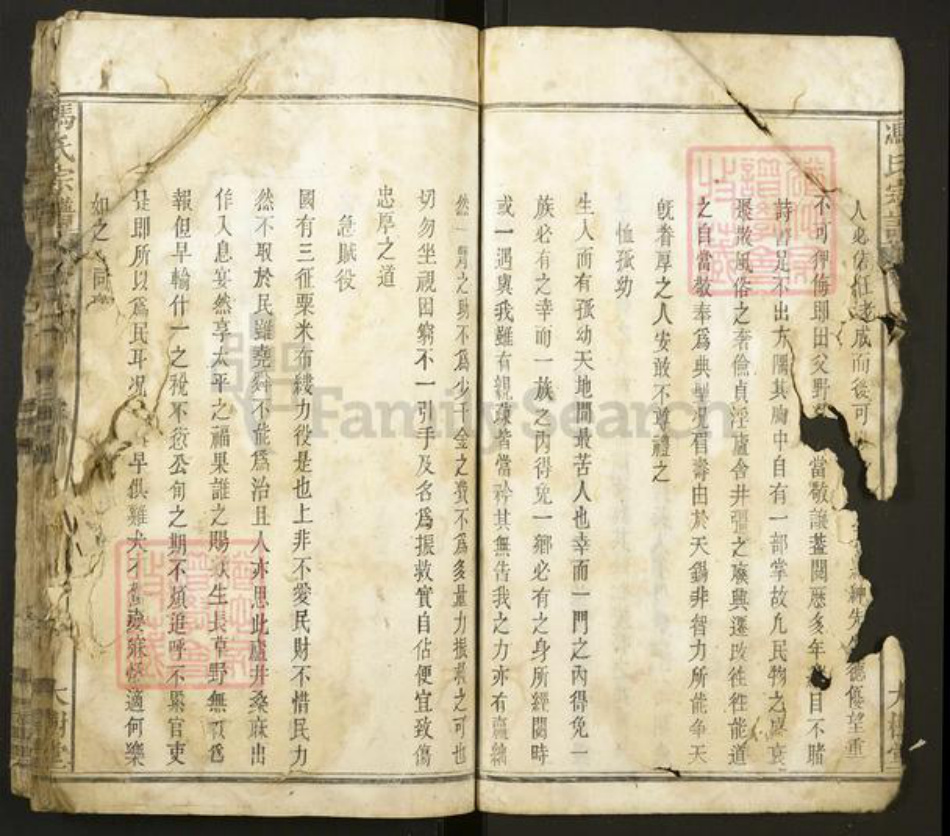 馮氏宗譜
大樹堂
人必信任老成而後可
紳先 德優望重
不可狎侮即田父野 當敬讓蓋閱歷多年 目不睹
詩書足不出方隅其胸中自有一部掌故凡民物之盛衰
裘敝風俗之奢儉貞淫廬舍井疆之廢興遷改往往能道
之自當敬奉為典型況眉壽由於天錫非智力所能爭天
既眷厚之人安敢不尊禮之
恤孤幼
生人而有孤幼天地間最苦人也幸而一門之內得免一
族必有之幸而一族之內得免一鄉必有之身所經閱時
或一遇與我雖有親疎皆當矜其無告我之力亦有贏絀
然一臂之助不為少千金之費不為多量力振救之可也
切勿坐視困窮不一引手及名為振救實自佔便宜致傷
忠厚之道
急賦役
國有三征粟米布縷力役是也上非不愛民財不惜民力
然不取於民雖堯舜不能為治且人亦思此廬井桑麻出
作入息宴然享太平之福果誰之賜歟生長草野無以為
報但早輸什一之稅不愆公旬之期不煩追呼不累官吏
是即所以為民耳況 早俱雞犬不驚 寐恬適何樂
如之
馮氏宗譜
大樹堂
FamilySearch